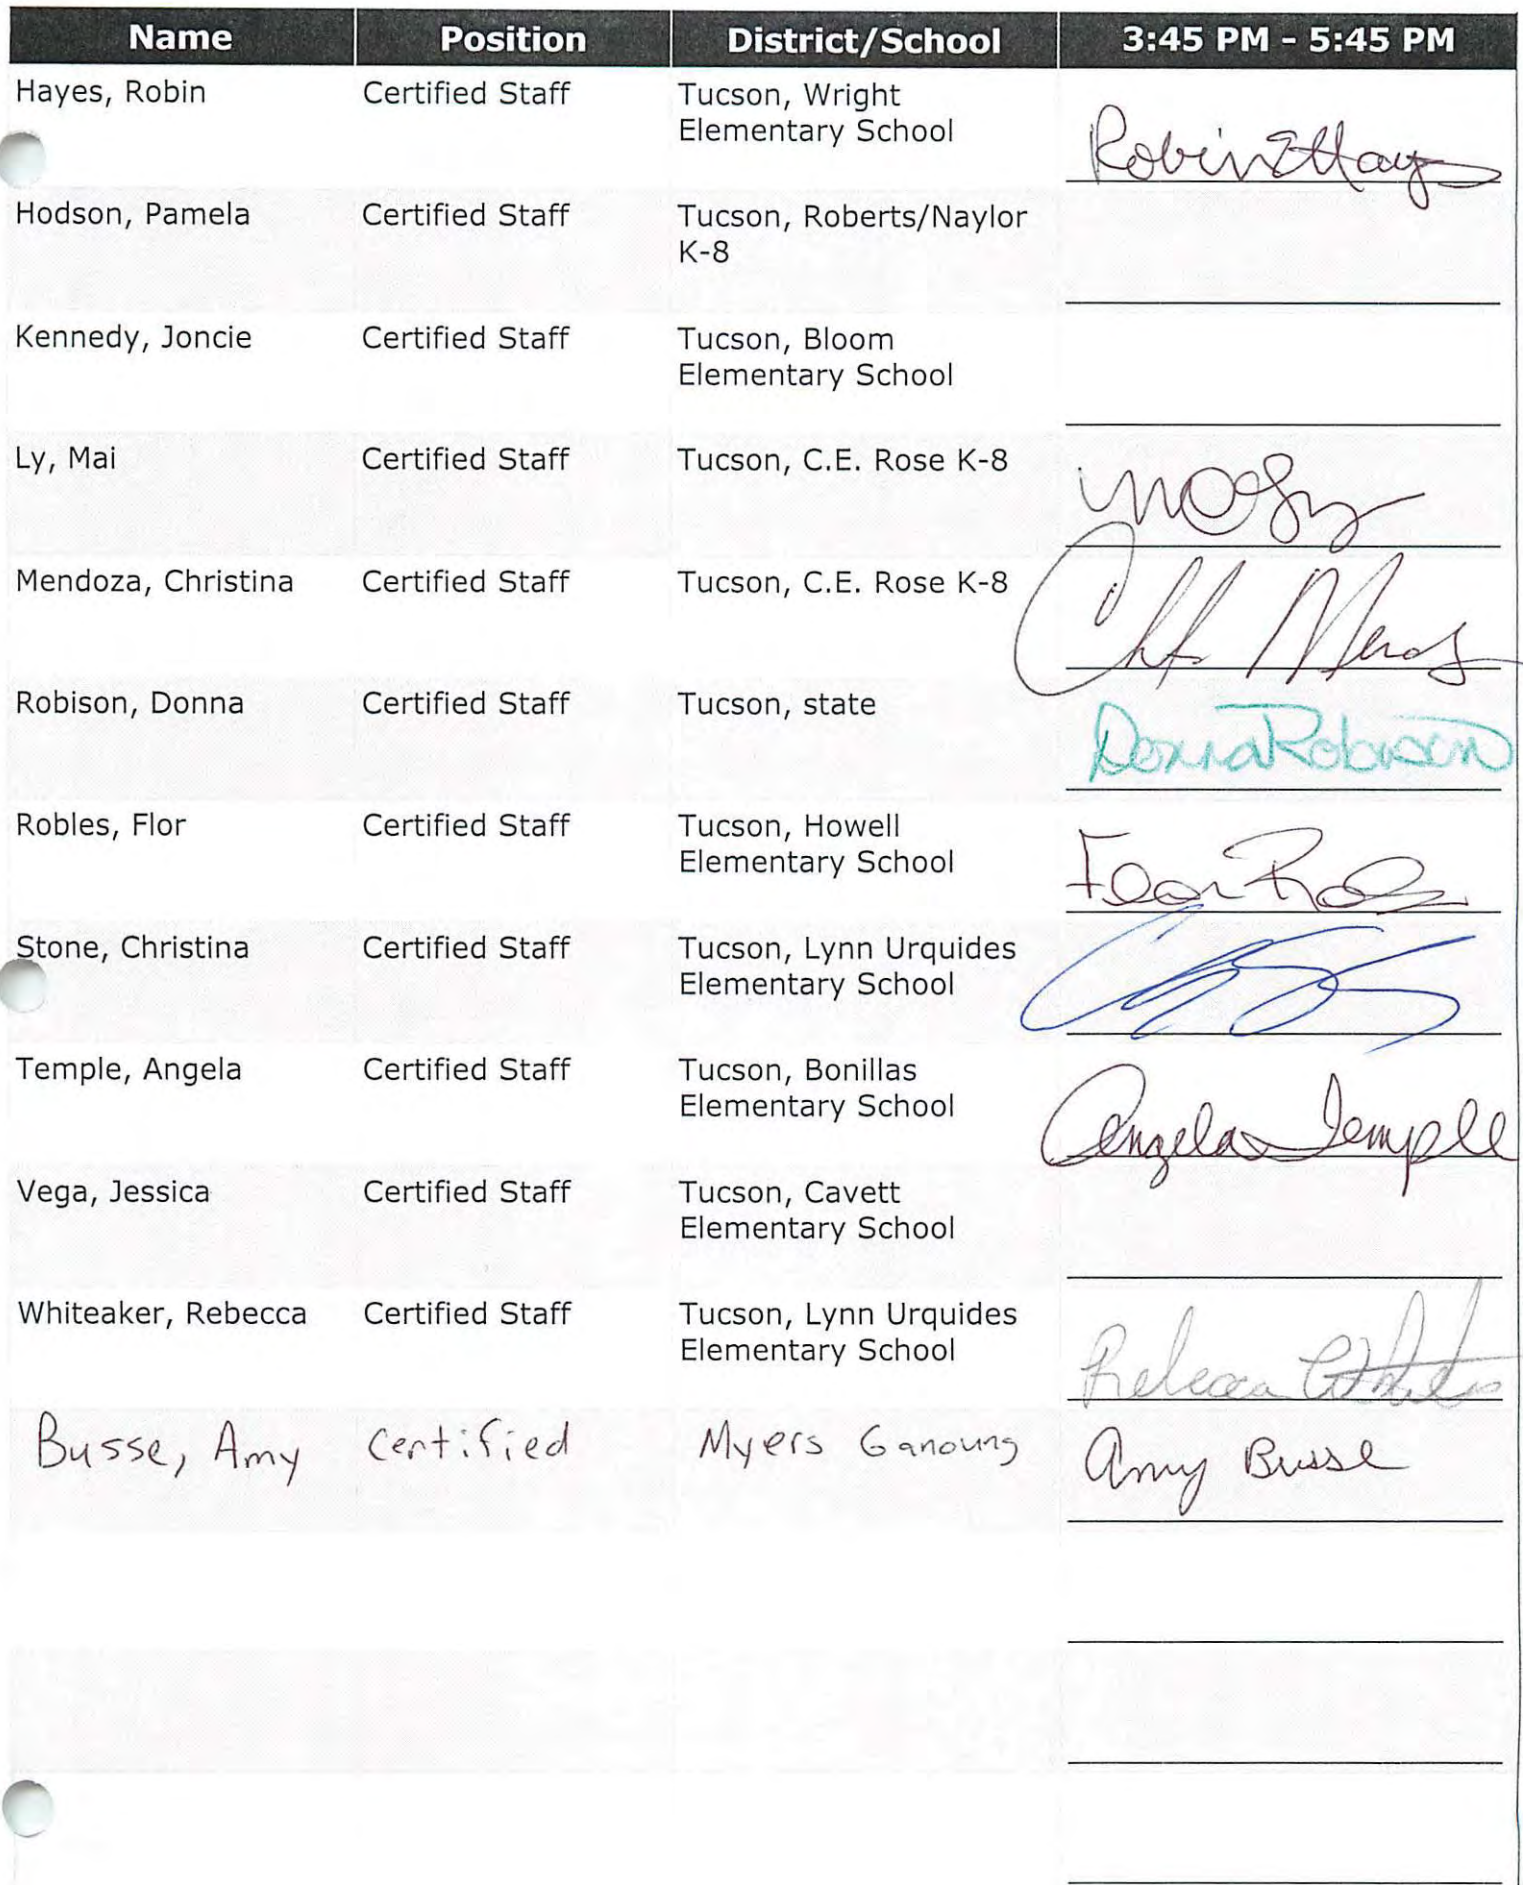 Name Position District/School 3:45 PM - 5:45 PM
Hayes, Robin Certified Staff Tucson, Wright
Elementary School
Robin Hays
Hodson, Pamela Certified Staff Tucson, Roberts/Naylor
K-8
Kennedy, Joncie Certified Staff Tucson, Bloom
Elementary School
Ly, Mai Certified Staff Tucson, C.E. Rose K-8
Mendoza, Christina Certified Staff Tucson, C.E. Rose K-8
Robison, Donna Certified Staff Tucson, state
Donna Robison
Robles, Flor Certified Staff Tucson, Howell
Elementary School
Flor
Stone, Christina Certified Staff Tucson, Lynn Urquides
Elementary School
Temple, Angela Certified Staff Tucson, Bonillas
Elementary School
Angela Temple
Vega, Jessica Certified Staff Tucson, Cavett
Elementary School
Whiteaker, Rebecca Certified Staff Tucson, Lynn Urquides
Elementary School
Rebecca
Busse, Amy Certified Myers Ganoung Amy Busse